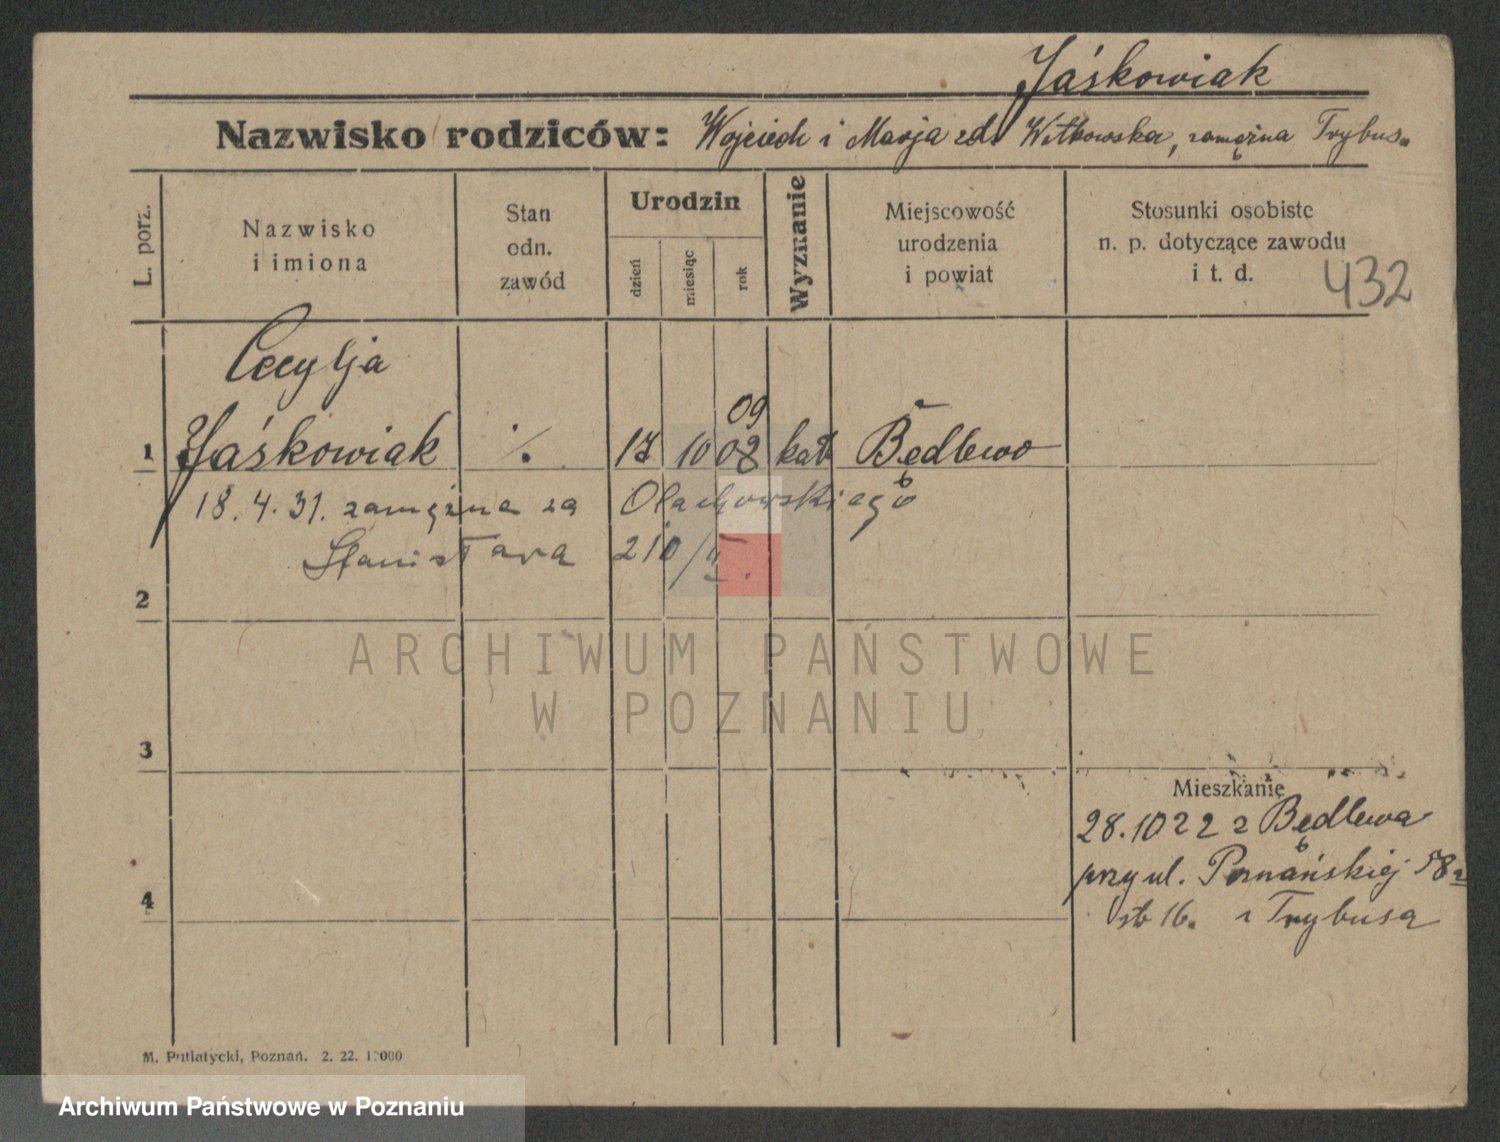 Jaśkowiak
Nazwisko rodziców: Wojciech i Marja zd. Witkowska, zamężna Trybus.
L. porz.
Nazwisko
i imiona
Stan
odn.
zawód
Urodzin
dzień
miesiąc
rok
Wyznanie
Miejscowość
urodzenia
i powiat
Stosunki osobiste
n. p. dotyczące zawodu
i t. d.
432
Cecylja
09
1 Jaśkowiak ./. 17 10 08 kat Będlewo
18.4.31. zamężna za Olachowskiego
Stanisława 210/II.
2
ARCHIWUM PAŃSTWOWE
W POZNANIU
3
Mieszkanie
28.10 22 z Będlewa
przy ul. Poznańskiej 58
4
16. Trybusa
M. Putiatycki, Poznań. 2. 22.
Archiwum Państwowe w Poznaniu